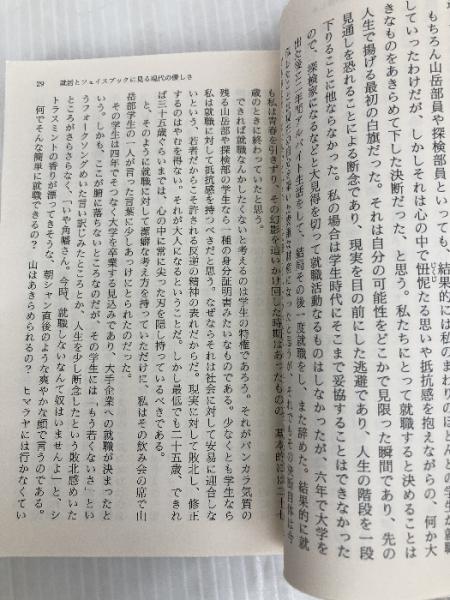 もちろん山岳部員や探検部員といっても、結果的には私のまわりのほとんどの学生が就職
していったわけだが、しかしそれは心の中で忸怩たる思いや抵抗感を抱えながらの、何か大
きなものをあきらめて下した決断だった、と思う。私たちにとって就職すると決めることは
人生で揚げる最初の白旗だった。それは自分の可能性をどこかで見限った瞬間であり、先の
見通しを恐れることによる断念であり、現実を目の前にした逃避であり、人生の階段を一段
下りることに他ならなかった。私の場合は学生時代にそこまで妥協することはできなかった
ので、探検家になるなどと大見得を切って就職活動なるものはしなかったが、六年で大学を
アルバイト生活をして、結局その後一度就職をし、また辞めた。結果的に就
29 就活とフェイスブックに見る現代の優しさ
も私は青春を引きずり、その幻影を追いかけ回した時期はあったものの、基本的には二十
歳のときに終わっていたと思う。
できれば就職なんかしたくないと考えるのは学生の特権であろう。それがバンカラ気質の
残る山岳部や探検部の学生なら一種の身分証明書みたいなものである。少なくとも学生なら
私は就職に対して抵抗感を持つべきだと思う。なぜならそれは社会に対して安易に迎合しな
いという、若者だからこそ許される反逆の精神の表れだからだ。現実に対して敗北し、修正
するのはやむを得ない。それが大人になるということだ。しかし最低でも二十五歳、できれ
ば三十五歳ぐらいまでは、心の中に常に尖った刃を隠し持っているべきである。
と、そのように就職に対して潔癖な考え方を持っていただけに、私はその飲み会の席で山
岳部学生の一人が言った言葉に少しあっけにとられたのだった。
その学生は四年でそつなく大学を卒業する見込みで、大手企業への就職が決まったと
いう。しかも、ここが腑に落ちないところなのだが、その学生には「もう若くないさ」とい
うフォークソングめいた言い訳じみたところとか、人生を少し断念したという敗北感めいた
ところがさらさらなく、「いや角幡さん。今時、就職しないなんて奴はいませんよ」と、シ
トラスミントの香りが漂ってきそうな、朝シャン直後のような爽やかな顔で言うのである。
何でそんな簡単に就職できるの？　山はあきらめられるの？　ヒマラヤには行かなくてい